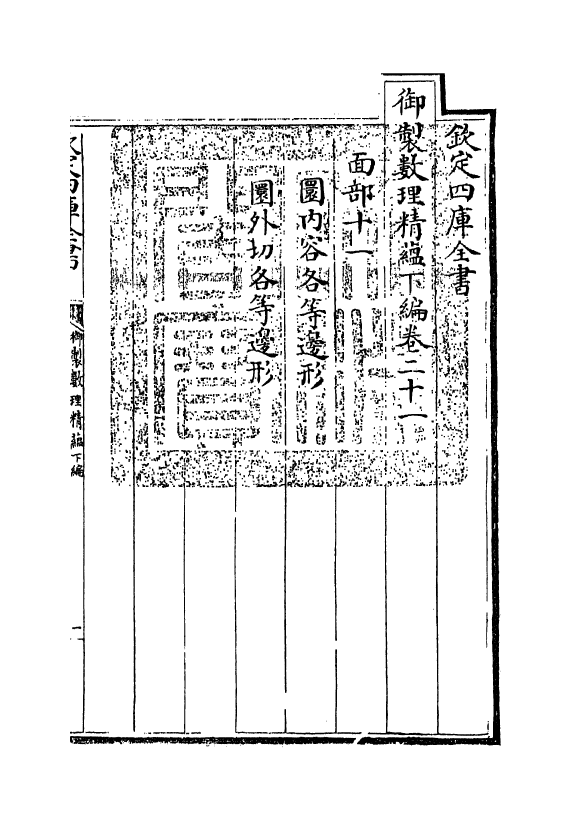 欽定四庫全書
御製數理精蘊下編卷二十一
面部十一
圜内容各等邊形
圜外切各等邊形
御製數理精蘊下編
一